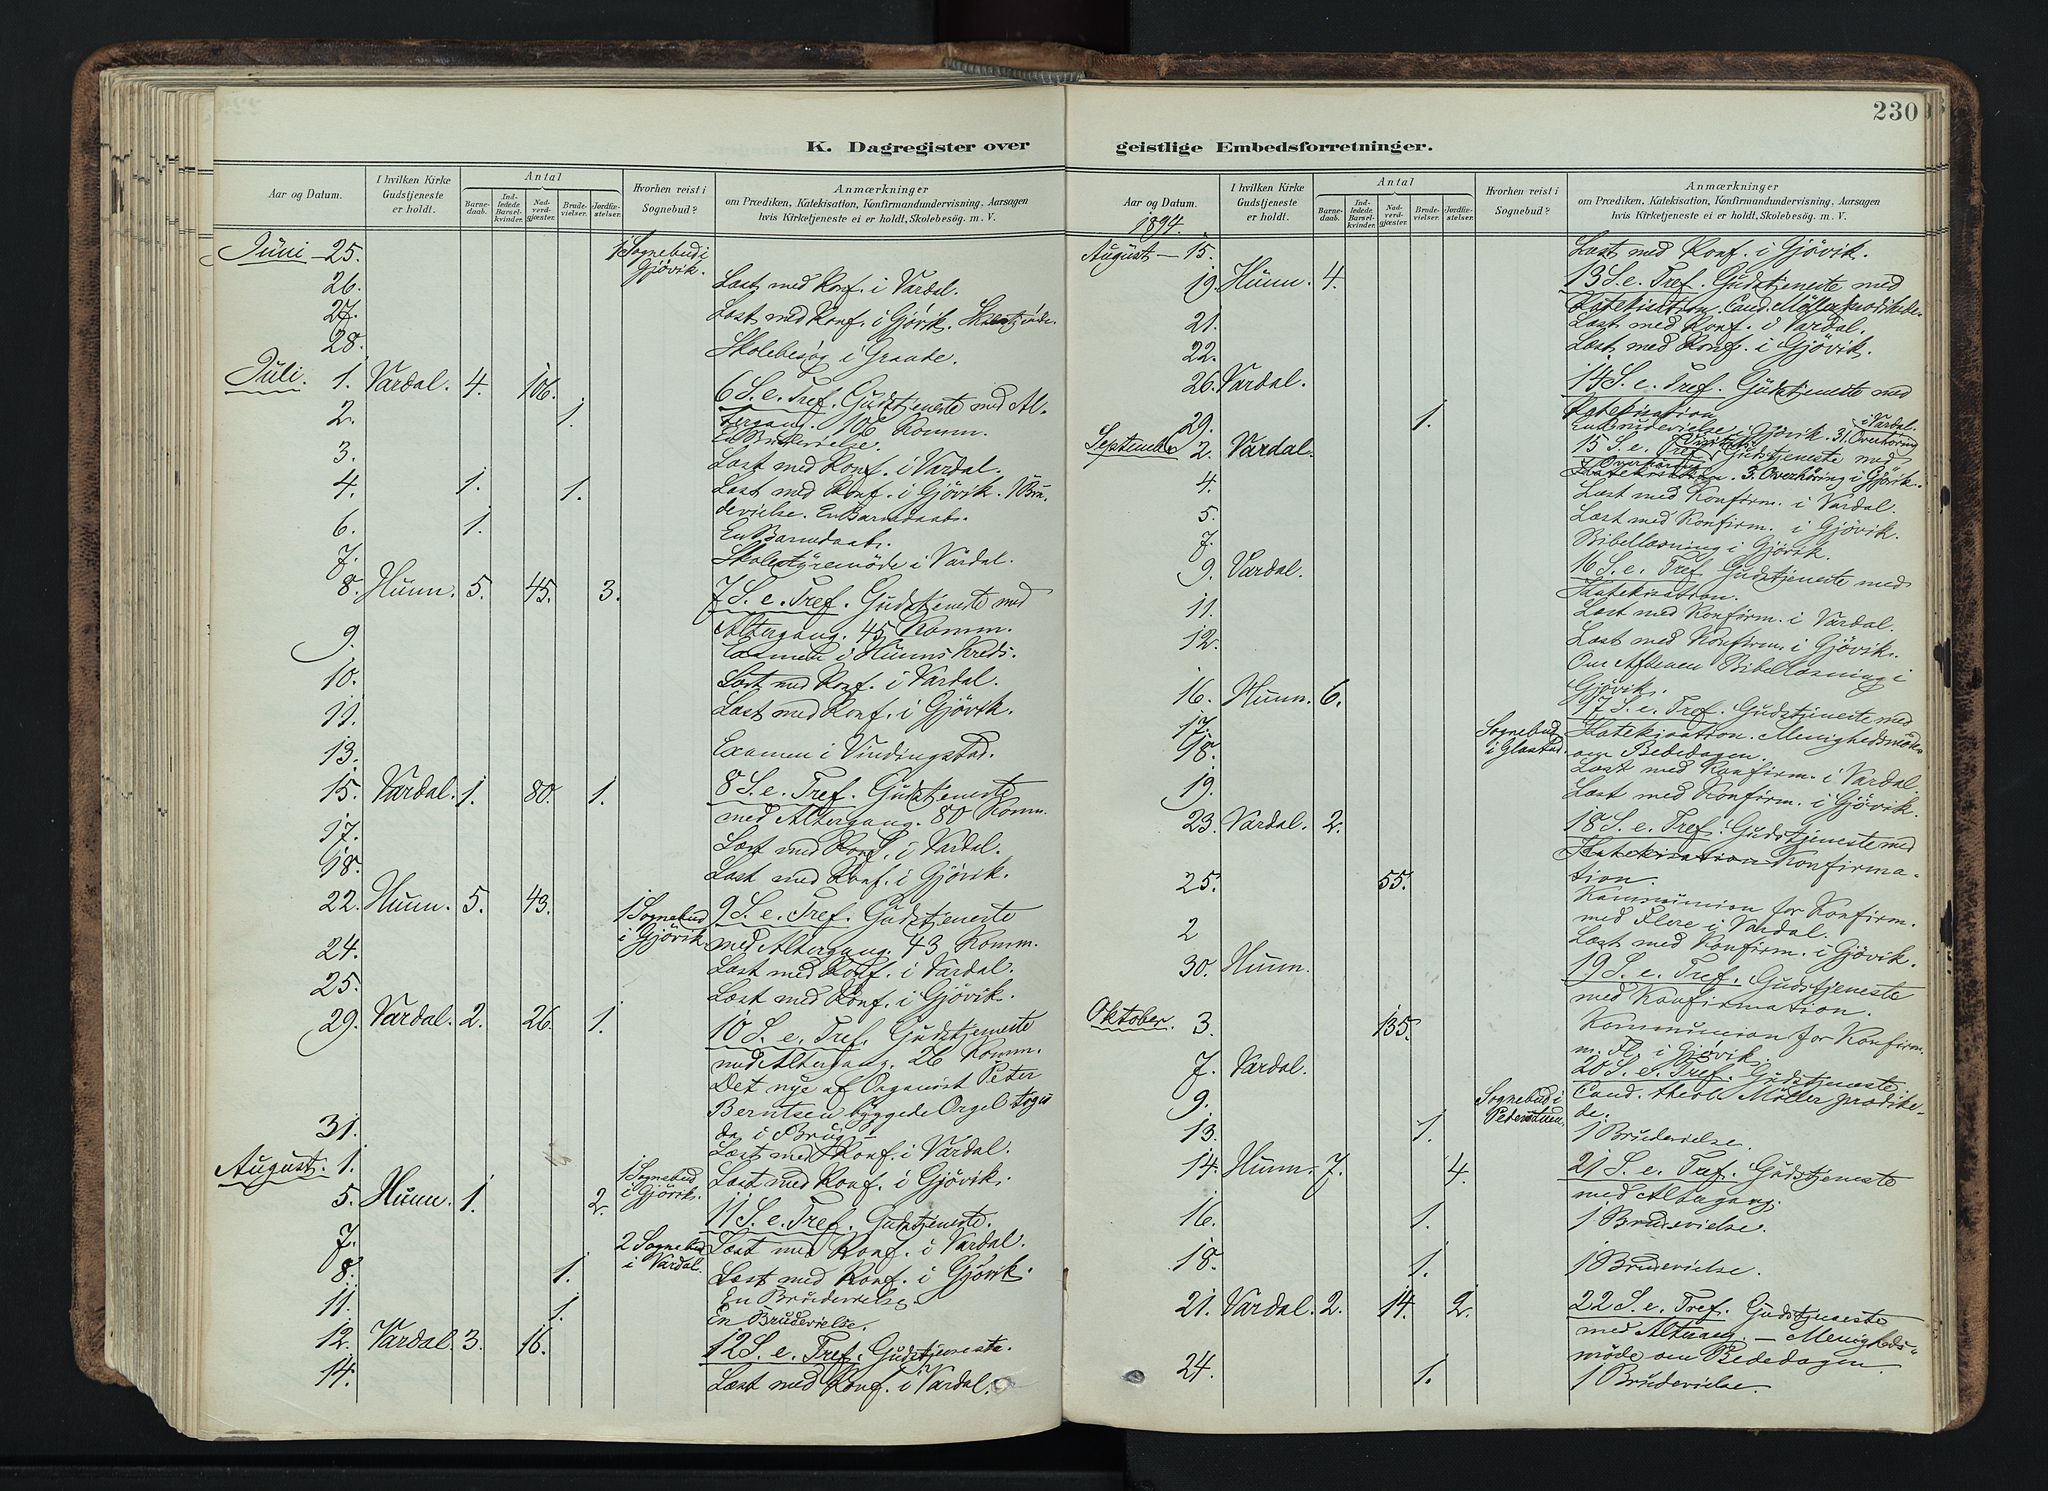 230
K. Dagregister over geistlige Embedsforretninger.
Aar og Datum.
I hvilken Kirke Gudstjeneste er holdt.
Antal
Barnedaab.
Indledede Barselkvinder.
Nadverdgjæster.
Brudevielser.
Jordfæstelser.
Hvorhen reist i Sognebud?
Anmærkninger
om Prædiken, Katekisation, Konfirmandundervisning, Aarsagen
hvis Kirketjeneste ei er holdt, Skolebesög m. V.
Juni - 25. 1 Sognebud i Gjövik.
26. Læst med Konf. i Vardal.
27. Læst med Konf. i Gjövik.
28. Skolebesög i Graude.
Juli. 1. Vardal. 4. 106. 6 S. e. Tref. Gudstjeneste med Al-
tergang. 106 Komm.
2. 1. En Brudevielse.
3. Læst med Konf. i Vardal.
4. 1. 1. Læst med Konf. i Gjövik. 1 Bru-
devielse. En Barnedaab.
6. 1. En Barnedaab.
7. Skolestyremöde i Vardal.
8. Hunn. 5. 45. 3. 7 S. e. Tref. Gudstjeneste med
Altergang. 45 Komm.
9. Examen i Hunns Kreds.
10. Læst med Konf. i Vardal.
11. Læst med Konf. i Gjövik.
13. Examen i Vindingstad.
15. Vardal. 1. 80. 1. 8 S. e. Tref. Gudstjeneste
med Altergang. 80 Komm.
17. Læst med Konf. i Vardal.
18. Læst med Konf. i Gjövik.
22. Hunn. 5. 43. 1 Sognebud i Gjövik. 9 S. e. Tref. Gudstjeneste
med Altergang. 43 Komm.
24. Læst med Konf. i Vardal.
25. Læst med Konf. i Gjövik.
29. Vardal. 2. 26. 1. 10 S. e. Tref. Gudstjeneste
med Altergang. 26 Komm.
Det nye af Organist Peter
Berntsen byggede Orgel toges
da i Brug.
31. Læst med Konf. i Vardal.
August. 1. 1 Sognebud i Gjövik. Læst med Konf. i Gjövik.
5. Hunn. 1. 2. 11 S. e. Tref. Gudstjeneste.
7. 2 Sognebud i Vardal. Læst med Konf. i Vardal.
8. 1. Læst med Konf. i Gjövik.
En Brudevielse.
11. 1. En Brudevielse.
12. Vardal. 3. 16. 12 S. e. Tref. Gudstjeneste.
14. Læst med Konf. i Vardal.
Aar og Datum.
I hvilken Kirke Gudstjeneste er holdt.
Antal
Barnedaab.
Indledede Barselkvinder.
Nadverdgjæster.
Brudevielser.
Jordfæstelser.
Hvorhen reist i Sognebud?
Anmærkninger
om Prædiken, Katekisation, Konfirmandundervisning, Aarsagen
hvis Kirketjeneste ei er holdt, Skolebesög m. V.
1894.
August - 15. Læst med Konf. i Gjövik.
19. Hunn. 4. 13 S. e. Tref. Gudstjeneste med
Katekisation. Cand. Möller prædikede.
21. Læst med Konf. i Vardal.
22. Læst med Konf. i Gjövik.
26. Vardal. 14 S. e. Tref. Gudstjeneste med
Katekisation
29. 1. En Brudevielse i Gjövik. 31. Overhöring i Vardal.
September 2. Vardal. 15 S. e. Tref. Gudstjeneste med
Katekisation. 3. Overhöring i Gjövik.
4. Læst med Konfirm. i Vardal.
5. Læst med Konfirm. i Gjövik.
7. Bibellæsning i Gjövik.
9. Vardal. 16 S. e. Tref. Gudstjeneste med
Katekisation.
11. Læst med Konfirm. i Vardal.
12. Læst med Konfirm. i Gjövik.
Om Aftenen Bibellæsning i
Gjövik.
16. Hunn. 6. 17 S. e. Tref. Gudstjeneste med
17. Sognebud i Glæstad. Katekisation. Menighedsmöde
om Bededagen.
18. Læst med Konfirm. i Vardal.
19. Læst med Konfirm. i Gjövik.
23. Vardal. 2. 18 S. e. Tref. Gudstjeneste med
Katekisation Konfirma-
tion.
25. 55. Kommunion for Konfirm.
med Flere i Vardal.
2 Læst med Konfirm. i Gjövik.
30. Hunn. 19 S. e. Tref. Gudstjeneste
med Konfirmation.
Oktober. 3. 135. Kommunion for Konfirm.
m. Fl. i Gjövik.
7. Vardal. 20 S. e. Tref. Gudstjeneste.
9. Sognebud i Cand. theol. Möller prædike-
de.
13. 1. 1 Brudevielse.
14. Hunn. 7. 4. 21 S. e. Tref. Gudstjeneste
med Altergang.
16. 1. 1 Brudevielse.
18. 1. 1 Brudevielse.
21. Vardal. 2. 14. 2. 22 S. e. Tref. Gudstjeneste
med Alterg. - Menigheds-
möde om Bededagen.
24. 1. 1 Brudevielse.